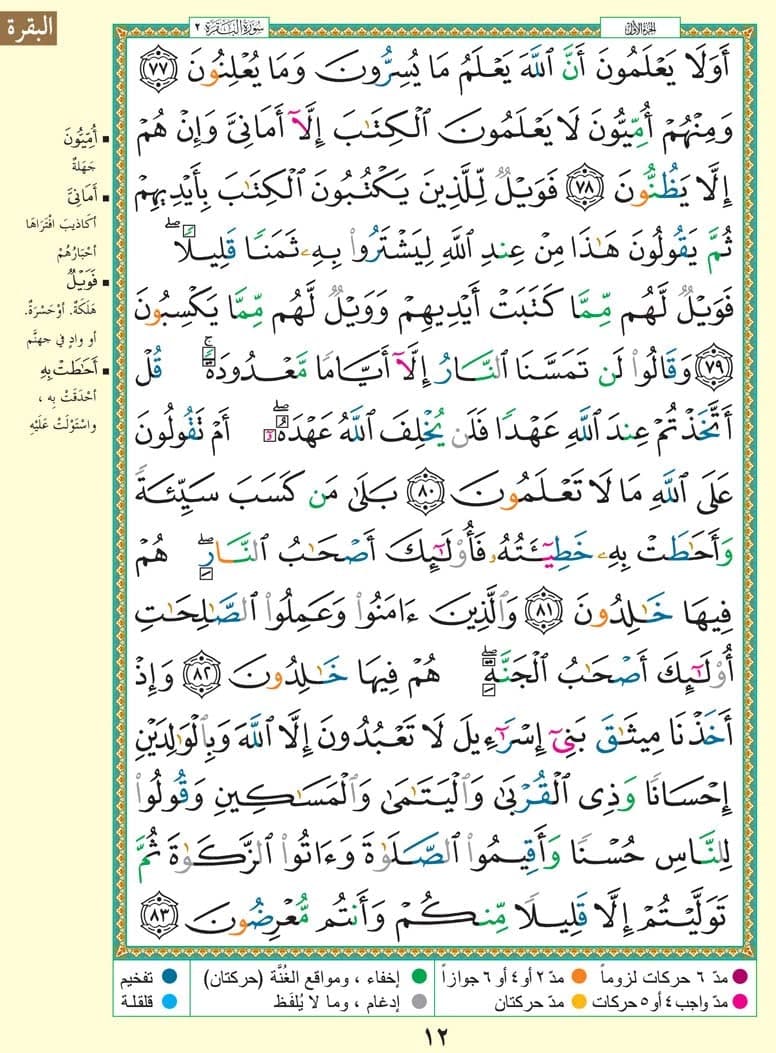 البقرة
سُورَةُ البَقَرَةِ ٢
الجُزءُ الأوّل
أَوَلَا يَعْلَمُونَ أَنَّ ٱللَّهَ يَعْلَمُ مَا يُسِرُّونَ وَمَا يُعْلِنُونَ ٧٧
وَمِنْهُمْ أُمِّيُّونَ لَا يَعْلَمُونَ ٱلْكِتَٰبَ إِلَّآ أَمَانِىَّ وَإِنْ هُمْ
إِلَّا يَظُنُّونَ ٧٨ فَوَيْلٌ لِّلَّذِينَ يَكْتُبُونَ ٱلْكِتَٰبَ بِأَيْدِيهِمْ
ثُمَّ يَقُولُونَ هَٰذَا مِنْ عِندِ ٱللَّهِ لِيَشْتَرُوا۟ بِهِۦ ثَمَنًا قَلِيلًا ۖ
فَوَيْلٌ لَّهُم مِّمَّا كَتَبَتْ أَيْدِيهِمْ وَوَيْلٌ لَّهُم مِّمَّا يَكْسِبُونَ
٧٩ وَقَالُوا۟ لَن تَمَسَّنَا ٱلنَّارُ إِلَّآ أَيَّامًا مَّعْدُودَةً ۚ قُلْ
أَتَّخَذْتُمْ عِندَ ٱللَّهِ عَهْدًا فَلَن يُخْلِفَ ٱللَّهُ عَهْدَهُۥٓ ۖ أَمْ تَقُولُونَ
عَلَى ٱللَّهِ مَا لَا تَعْلَمُونَ ٨٠ بَلَىٰ مَن كَسَبَ سَيِّئَةً
وَأَحَٰطَتْ بِهِۦ خَطِيٓـَٔتُهُۥ فَأُو۟لَٰٓئِكَ أَصْحَٰبُ ٱلنَّارِ ۖ هُمْ
فِيهَا خَٰلِدُونَ ٨١ وَٱلَّذِينَ ءَامَنُوا۟ وَعَمِلُوا۟ ٱلصَّٰلِحَٰتِ
أُو۟لَٰٓئِكَ أَصْحَٰبُ ٱلْجَنَّةِ ۖ هُمْ فِيهَا خَٰلِدُونَ ٨٢ وَإِذْ
أَخَذْنَا مِيثَٰقَ بَنِىٓ إِسْرَٰٓءِيلَ لَا تَعْبُدُونَ إِلَّا ٱللَّهَ وَبِٱلْوَٰلِدَيْنِ
إِحْسَانًا وَذِى ٱلْقُرْبَىٰ وَٱلْيَتَٰمَىٰ وَٱلْمَسَٰكِينِ وَقُولُوا۟
لِلنَّاسِ حُسْنًا وَأَقِيمُوا۟ ٱلصَّلَوٰةَ وَءَاتُوا۟ ٱلزَّكَوٰةَ ثُمَّ
تَوَلَّيْتُمْ إِلَّا قَلِيلًا مِّنكُمْ وَأَنتُم مُّعْرِضُونَ ٨٣
أُمِّيُّونَ
جَهَلةٌ
أَمَانِىَّ
أكاذيبَ افْتَرَاهَا
أحْبَارُهُمْ
فَوَيْلٌ
هَلَكَةٌ. أوْحَسْرَةٌ.
أو وادٍ في جهنَّم
أَحَٰطَتْ بِهِ
أحْدَقَتْ به ،
واسْتَوْلَتْ عَلَيْهِ
مدّ ٦ حركات لزوماً
مدّ ٢ أو ٤ أو ٦ جوازاً
إخفاء ، ومواقع الغُنَّة (حركتان)
تفخيم
مدّ واجب ٤ أو ٥ حركات
مدّ حركتان
إدغام ، وما لا يُلفَظ
قلقلة
١٢